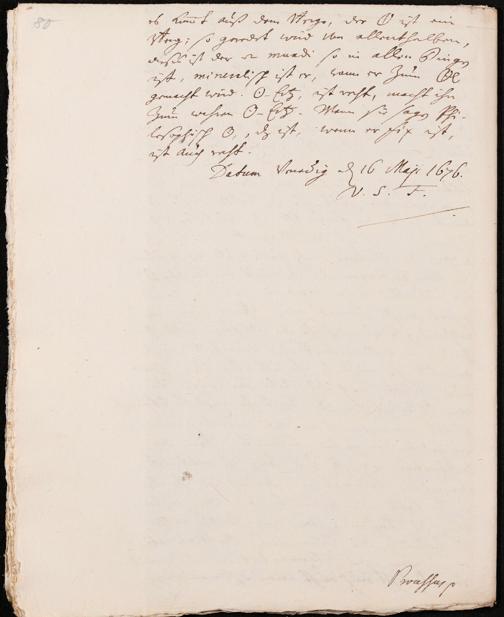 80
es kommt auß dem Wege, der ☉ ist ein
Weg: so geredet wird von allenthalben,
der mundi so in allen Dingen
ist, mineralisch ist er, wann er zum
gemacht wird. ☉ Ertz, ist recht, macht ihn
zum wahren ☉ Ertz. Wann sie sagen Phi-
losophisch ☉, dz ist, wenn er fix ist,
ist auch recht.
Datum Venedig d 16 Maji 1676.
V. S. F.